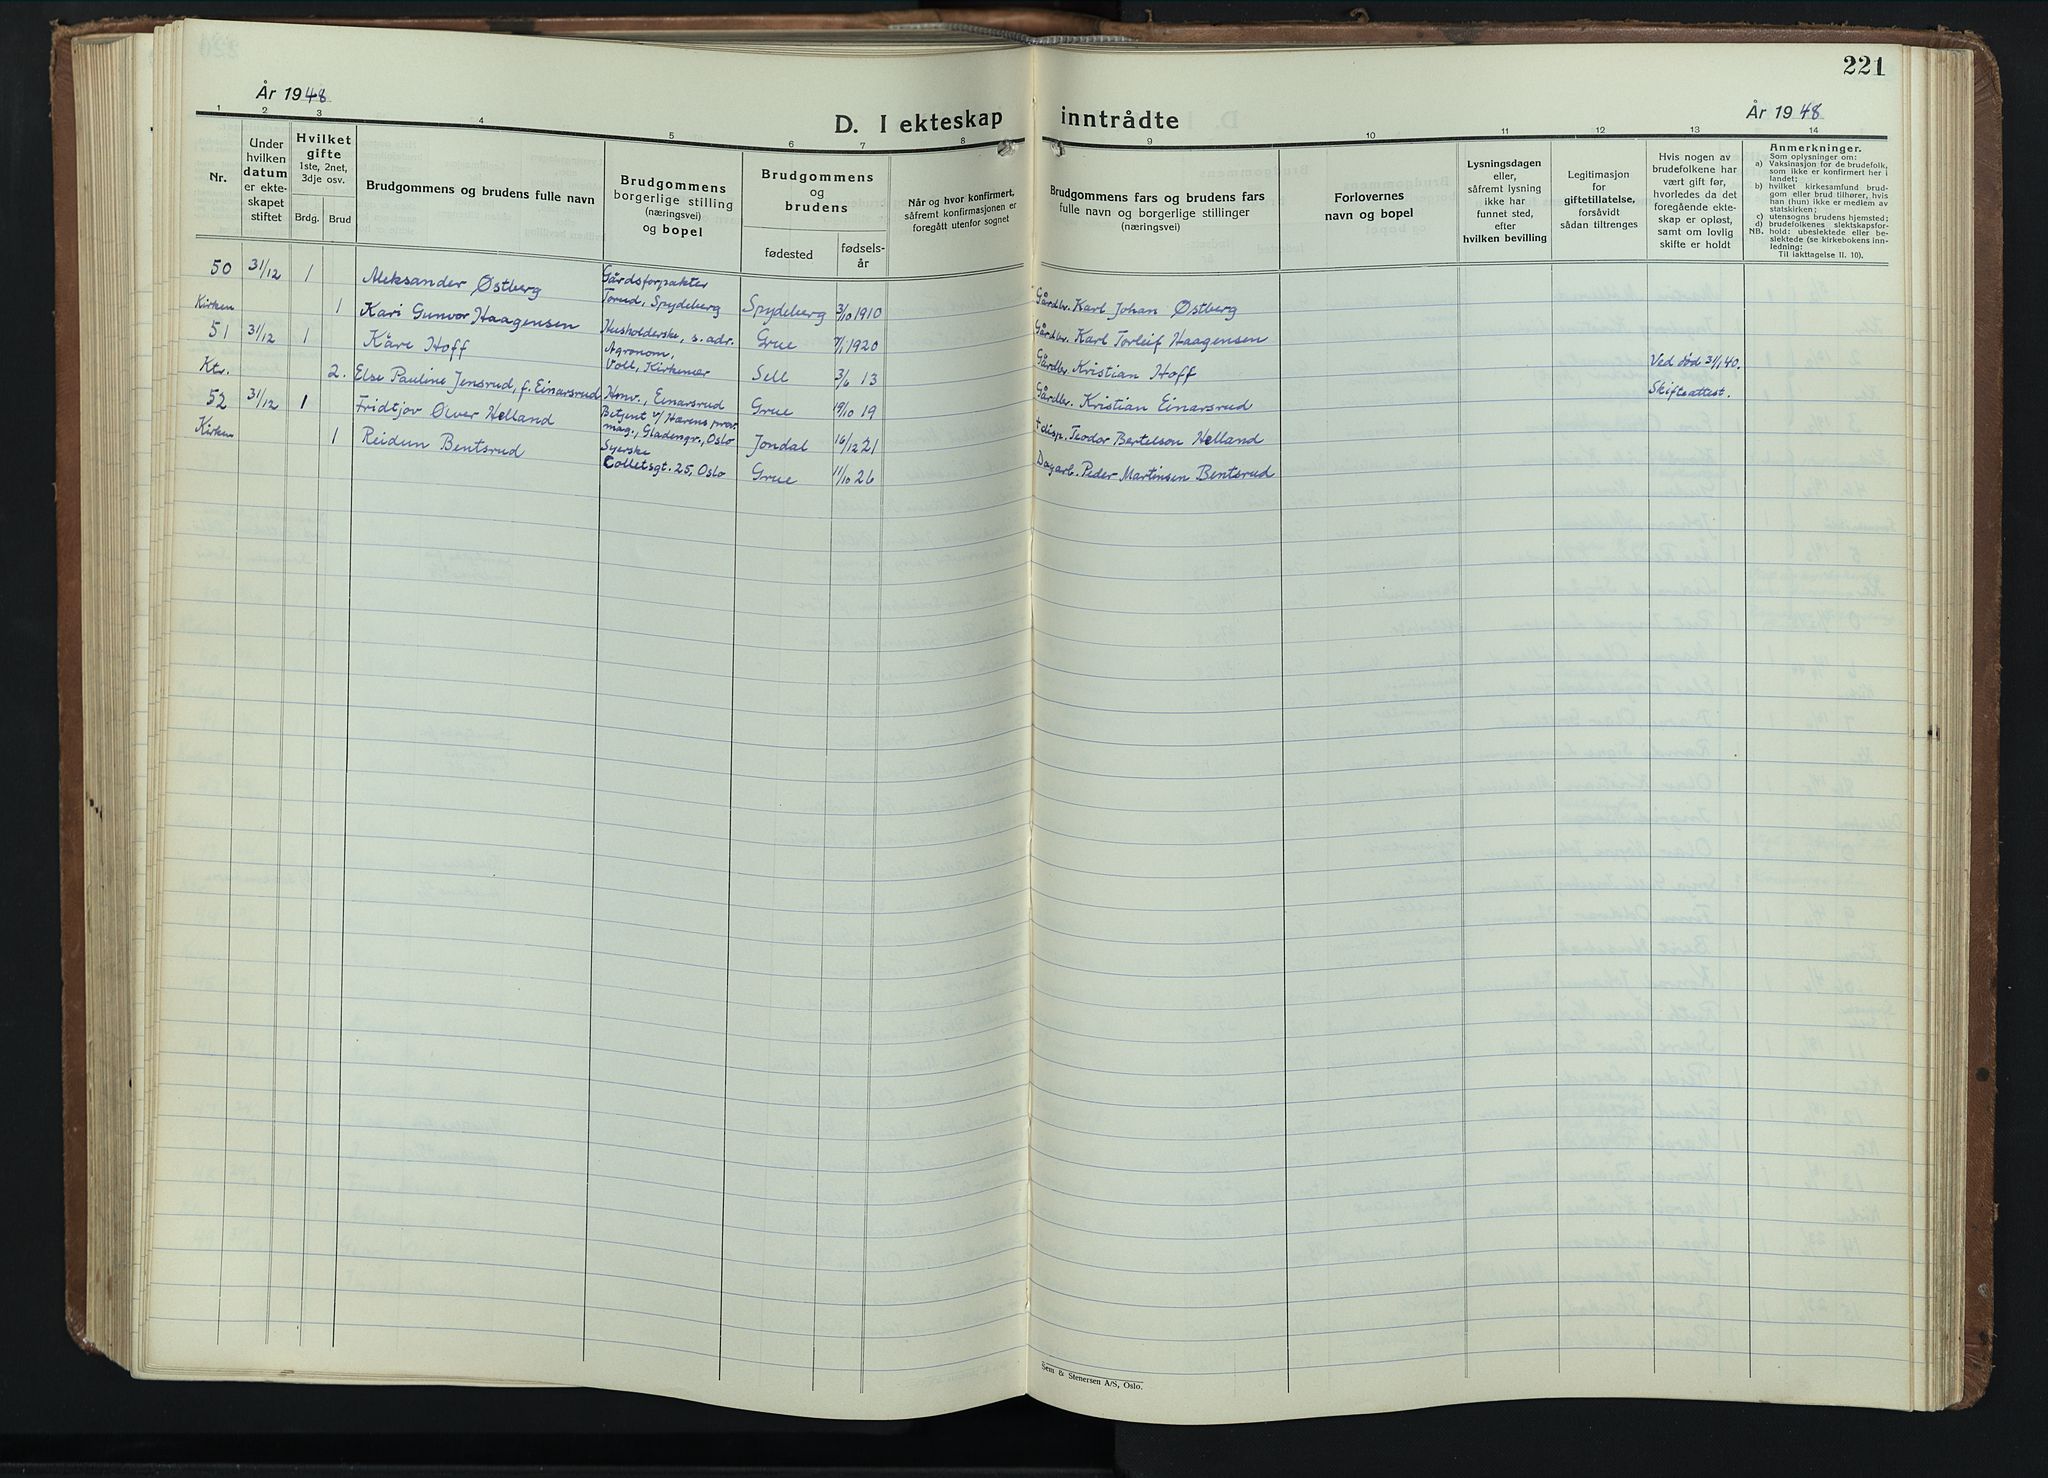 221
År 1948
D. I ekteskap inntrådte
År 1948
1 2 3 4 5 6 7 8 9 10 11 12 13 14
Nr.
Under hvilken datum er ekteskapet stiftet
Hvilket gifte 1ste, 2net, 3dje osv.
Brdg. Brud
Brudgommens og brudens fulle navn
Brudgommens borgerlige stilling (næringsvei) og bopel
Brudgommens og brudens
fødested
fødselsår
Når og hvor konfirmert, såfremt konfirmasjonen er foregått utenfor sognet
Brudgommens fars og brudens fars fulle navn og borgerlige stillinger (næringsvei)
Forlovernes navn og bopel
Lysningsdagen eller, såfremt lysning ikke har funnet sted, efter hvilken bevilling
Legitimasjon for giftetillatelse, forsåvidt sådan tiltrenges
Hvis nogen av brudefolkene har vært gift før, hvorledes da det foregående ekteskap er opløst, samt om lovlig skifte er holdt
Anmerkninger.
Som oplysninger om:
a) Vaksinasjon for de brudefolk, som ikke er konfirmert her i landet;
b) hvilket kirkesamfund brudgom eller brud tilhører, hvis han (hun) ikke er medlem av statskirken;
c) utensogns brudens hjemsted;
d) brudefolkenes slektskapsforhold: ubeslektede eller beslektede (se kirkebokens innledning:
NB. Til iakttagelse II. 10).
50 31/12 1 Aleksander Østberg Gårdsforpakter Torud, Spydeberg Spydeberg 3/10 1910 Gårdbr. Karl Johan Østberg
Kirken 1 Kari Gunvor Haagensen Husholderske, s. adr. Grue 7/1 1920 Gårdbr. Karl Torleif Haagensen
51 31/12 1 Kåre Hoff Agronom, Voll, Kirkenær Sell 3/6 13 Gårdbr. Kristian Hoff
Ktr. 2. Else Pauline Jensrud, f. Einarsrud Hmv., Einarsrud Grue 19/10 19 Gårdbr. Kristian Einarsrud Ved død 31/1 40. Skifteattest.
52 31/12 1 Fridtjov Ølver Helland Betjent v/Hærens prov. mag., Gladengv., Oslo Jondal 16/12 21 † disp. Teodor Bertelson Helland
Kirken 1 Reidun Bentsrud Syerske Colletsgt. 25, Oslo Grue 11/10 26 Dagarb. Peder Martinsen Bentsrud
Sem & Stenersen A/S, Oslo.